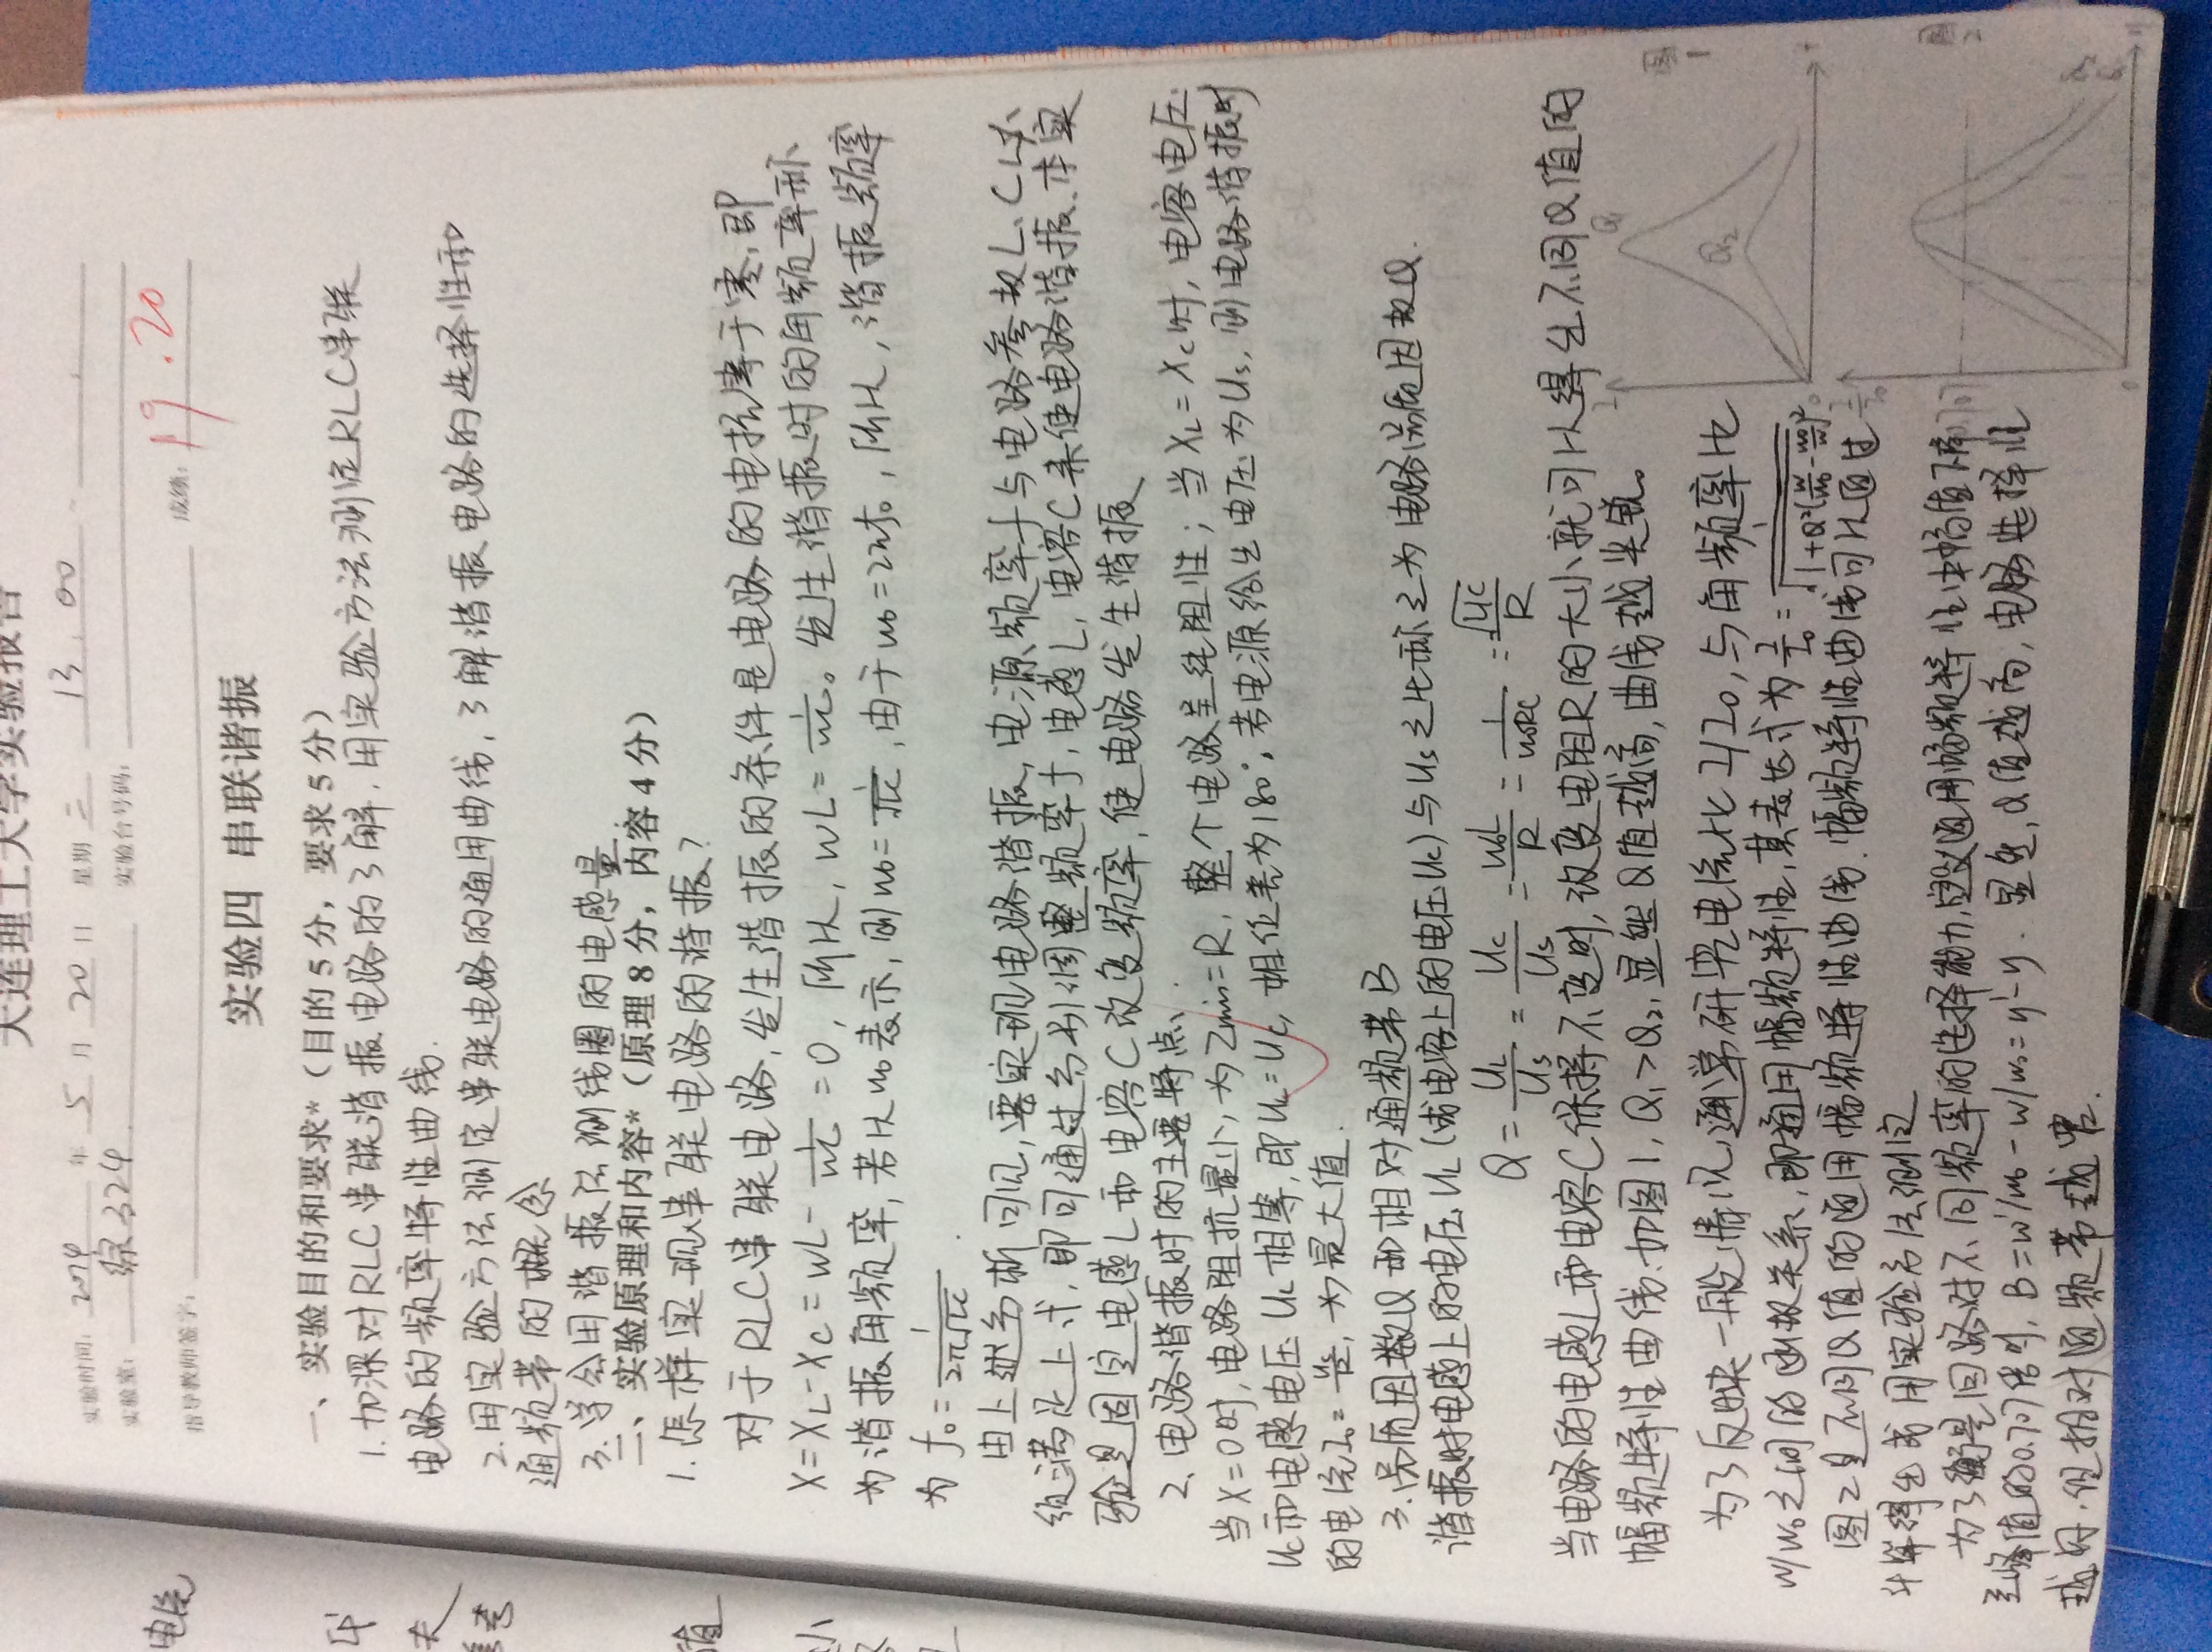 大连理工大学实验报告
实验时间: 2014 年 5 月 20 日 星期 二 13:00
实验室: 综3224 实验台号码:
指导教师签字: 成绩: 19.20
实验四 串联谐振
一、实验目的和要求*（目的5分，要求5分）
1.加深对RLC串联谐振电路的了解,用实验方法测定RLC串联
电路的频率特性曲线.
2.用实验方法测定串联电路的通用曲线,了解谐振电路的选择性和
通频带的概念
3.学会用谐振法测线圈的电感量
二、实验原理和内容*（原理8分，内容4分）
1.怎样实现串联电路的谐振?
对于RLC串联电路,发生谐振的条件是电路的电抗等于零,即
X=XL-Xc=wL-1/wc=0,所以,wL=1/wc。发生谐振时的角频率称
为谐振角频率,若以w0表示,则w0=1/√LC,由于w0=2πf0,所以,谐振频率
为f0=1/2π√LC
由上分析可见,要实现电路谐振,电源频率f与电路参数L、C必
须满足上式,即可通过分别调整频率f,电感L,电容C来使电路谐振.本实
验是固定电感L和电容C改变频率,使电路发生谐振
2.电路谐振时的主要特点
当X=0时,电路阻抗最小,为Zmin=R,整个电路呈纯阻性;当XL=Xc时,电容电压
Uc和电感电压UL相等,即UL=Uc,相位差为180°,若电源给定电压为Us,则电路谐振时
的电流I0=Us/R,为最大值.
3.品质因数Q和相对通频带B
谐振时电感上的电压UL(或电容上的电压Uc)与Us之比称之为电路品质因数Q.
Q=UL/Us=Uc/Us=w0L/R=1/w0RC=√L/C/R
当电路的电感L和电容C保持不变时,改变电阻R的大小,就可以得出不同Q值时的
幅频特性曲线.如图1,Q1>Q2,显然Q值越高,曲线越尖锐。
为了反映一般情况,通常研究电流比I/I0,与角频率比
w/w0之间的函数关系,即通用幅频特性,其表达式为I/I0=1/√1+Q²(w/w0-w0/w)²
图2是不同Q值的通用幅频特性曲线.幅频特性曲线可以由
计算得出或用实验方法测定
为了衡量回路对不同频率的选择能力,定义通用幅频特性中幅值下降
至峰值的0.707倍时,B=w'/w0-w/w0=y'-y.显然,Q值越高,电路选择性
越好,但相对通频带越窄.
图1
Q1
Q2
图2